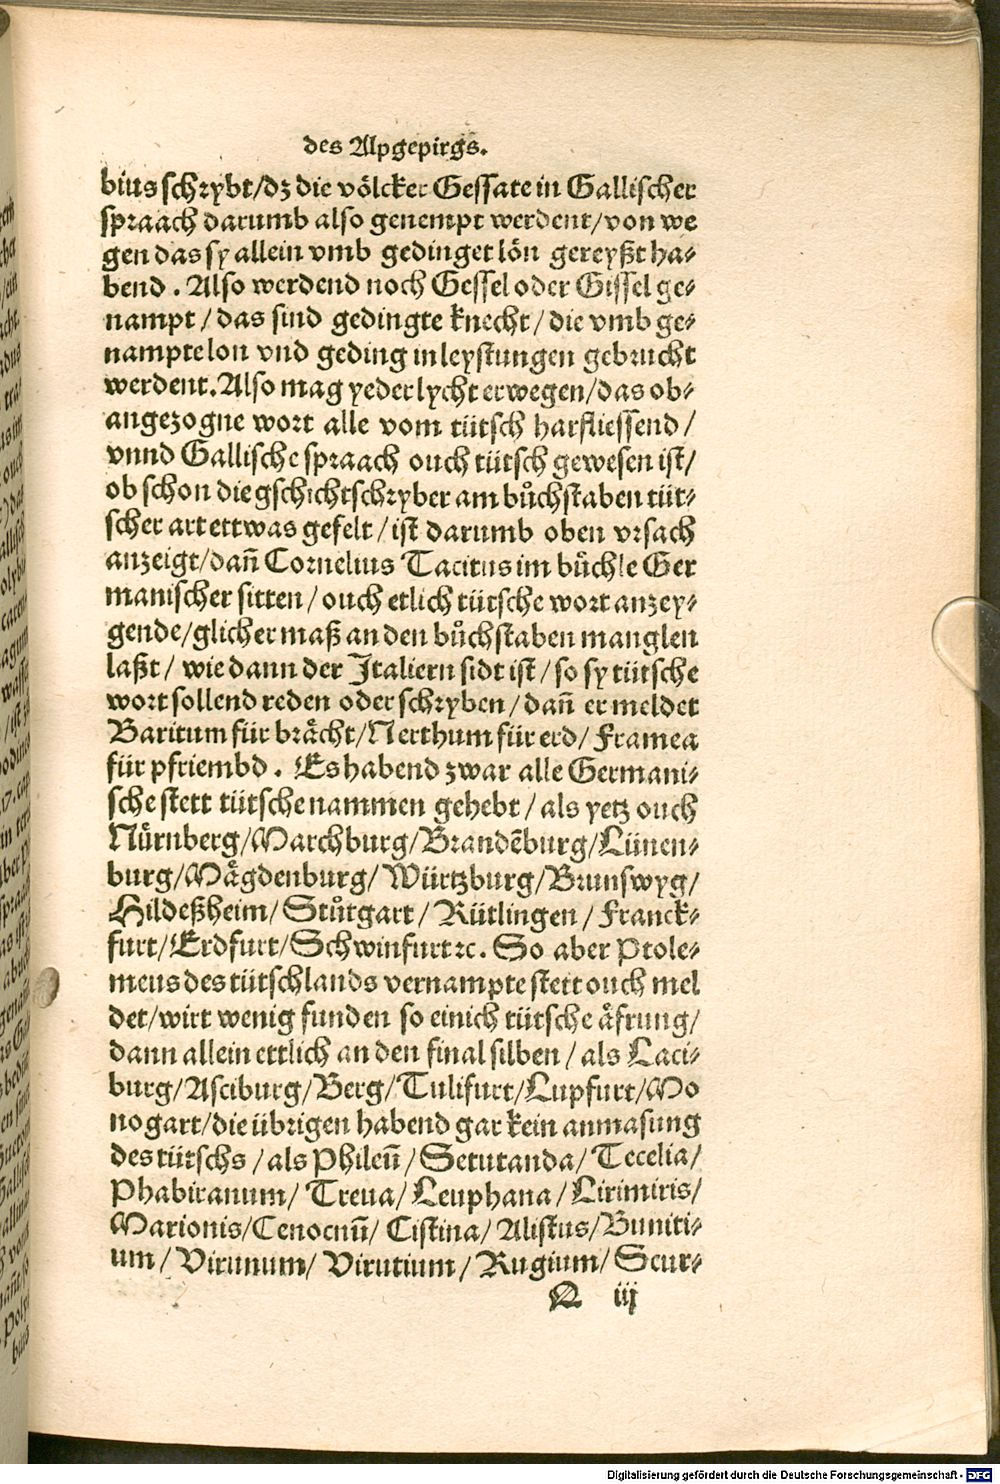 des Alpgepirgs.
bius schrybt/dz die völcker Gessate in Gallischer
spraach darumb also genempt werdent/von we
gen das sy allein vmb gedinget lön gereyßt ha-
bend. Also werdend noch Gessel oder Gissel ge-
nampt/das sind gedingte knecht/die vmb ge-
nampte lon vnd geding in leystungen gebrucht
werdent. Also mag yeder lycht erwegen/das ob-
angezogne wort alle vom tütsch harfliessend/
vnnd Gallische spraach ouch tütsch gewesen ist/
ob schon die gschichtschryber am bůchstaben tüt-
scher art ettwas gefelt/ist darumb oben vrsach
anzeigt/dañ Cornelius Tacitus im büchle Ger
manischer sitten/ouch etlich tütsche wort anzey-
gende/glicher maß an den bůchstaben manglen
laßt/wie dann der Italiern sidt ist/so sy tütsche
wort sollend reden oder schryben/dañ er meldet
Baritum für brächt/Nerthum für erd/Framea
für pfriembd. Es habend zwar alle Germani-
sche stett tütsche nammen gehebt/als yetz ouch
Nürnberg/Marchburg/Brandēburg/Lünen-
burg/Mägdenburg/Würtzburg/Brunswyg/
Hildeßheim/Stůtgart/Rütlingen/Franck-
furt/Erdfurt/Schwinfurt ꝛc. So aber Ptole-
meus des tütschlands vernampte stett ouch mel
det/wirt wenig funden so einich tütsche äfrung/
dann allein ettlich an den final silben/als Laci-
burg/Asciburg/Berg/Tulifurt/Lupfurt/Mo
nogart/die übrigen habend gar kein anmasung
des tütschs/als Phileū/Setutanda/Tecelia/
Phabiranum/Treua/Leuphana/Lirimiris/
Marionis/Cenocnū/Cistina/Alistus/Buniti-
um/Virunum/Virutium/Rugium/Scur-
Q iij
Digitalisierung gefördert durch die Deutsche Forschungsgemeinschaft - DFG